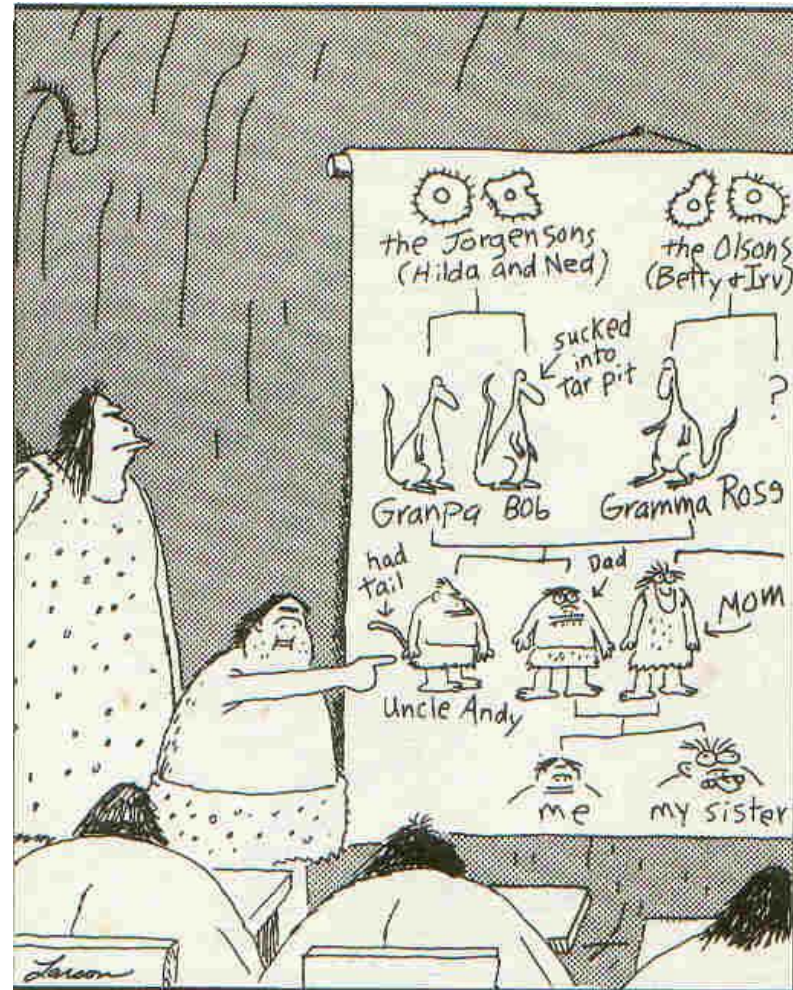 the Jorgensons
(Hilda and Ned)
the Olsons
(Betty & Irv)
sucked
into
tar pit
?
Granpa Bob
Gramma Rose
had
tail
Dad
Mom
Uncle Andy
me
my sister
Larson